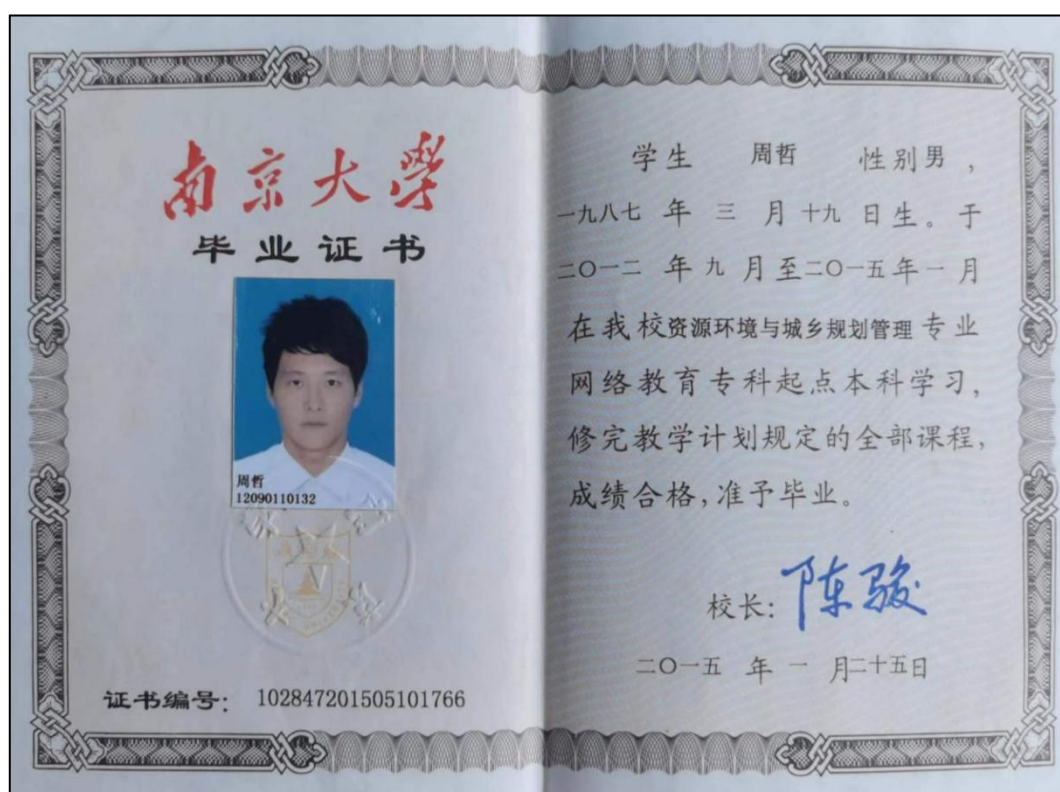 南京大學
毕业证书
周哲
12090110132
证书编号: 102847201505101766
学生 周哲 性别男,
一九八七 年 三 月 十九 日生。于
二〇一二 年 九 月至二〇一五年 一 月
在我校资源环境与城乡规划管理专业
网络教育专科起点本科学习,
修完教学计划规定的全部课程,
成绩合格,准予毕业。
校长: 陈骏
二〇一五 年 一 月二十五日